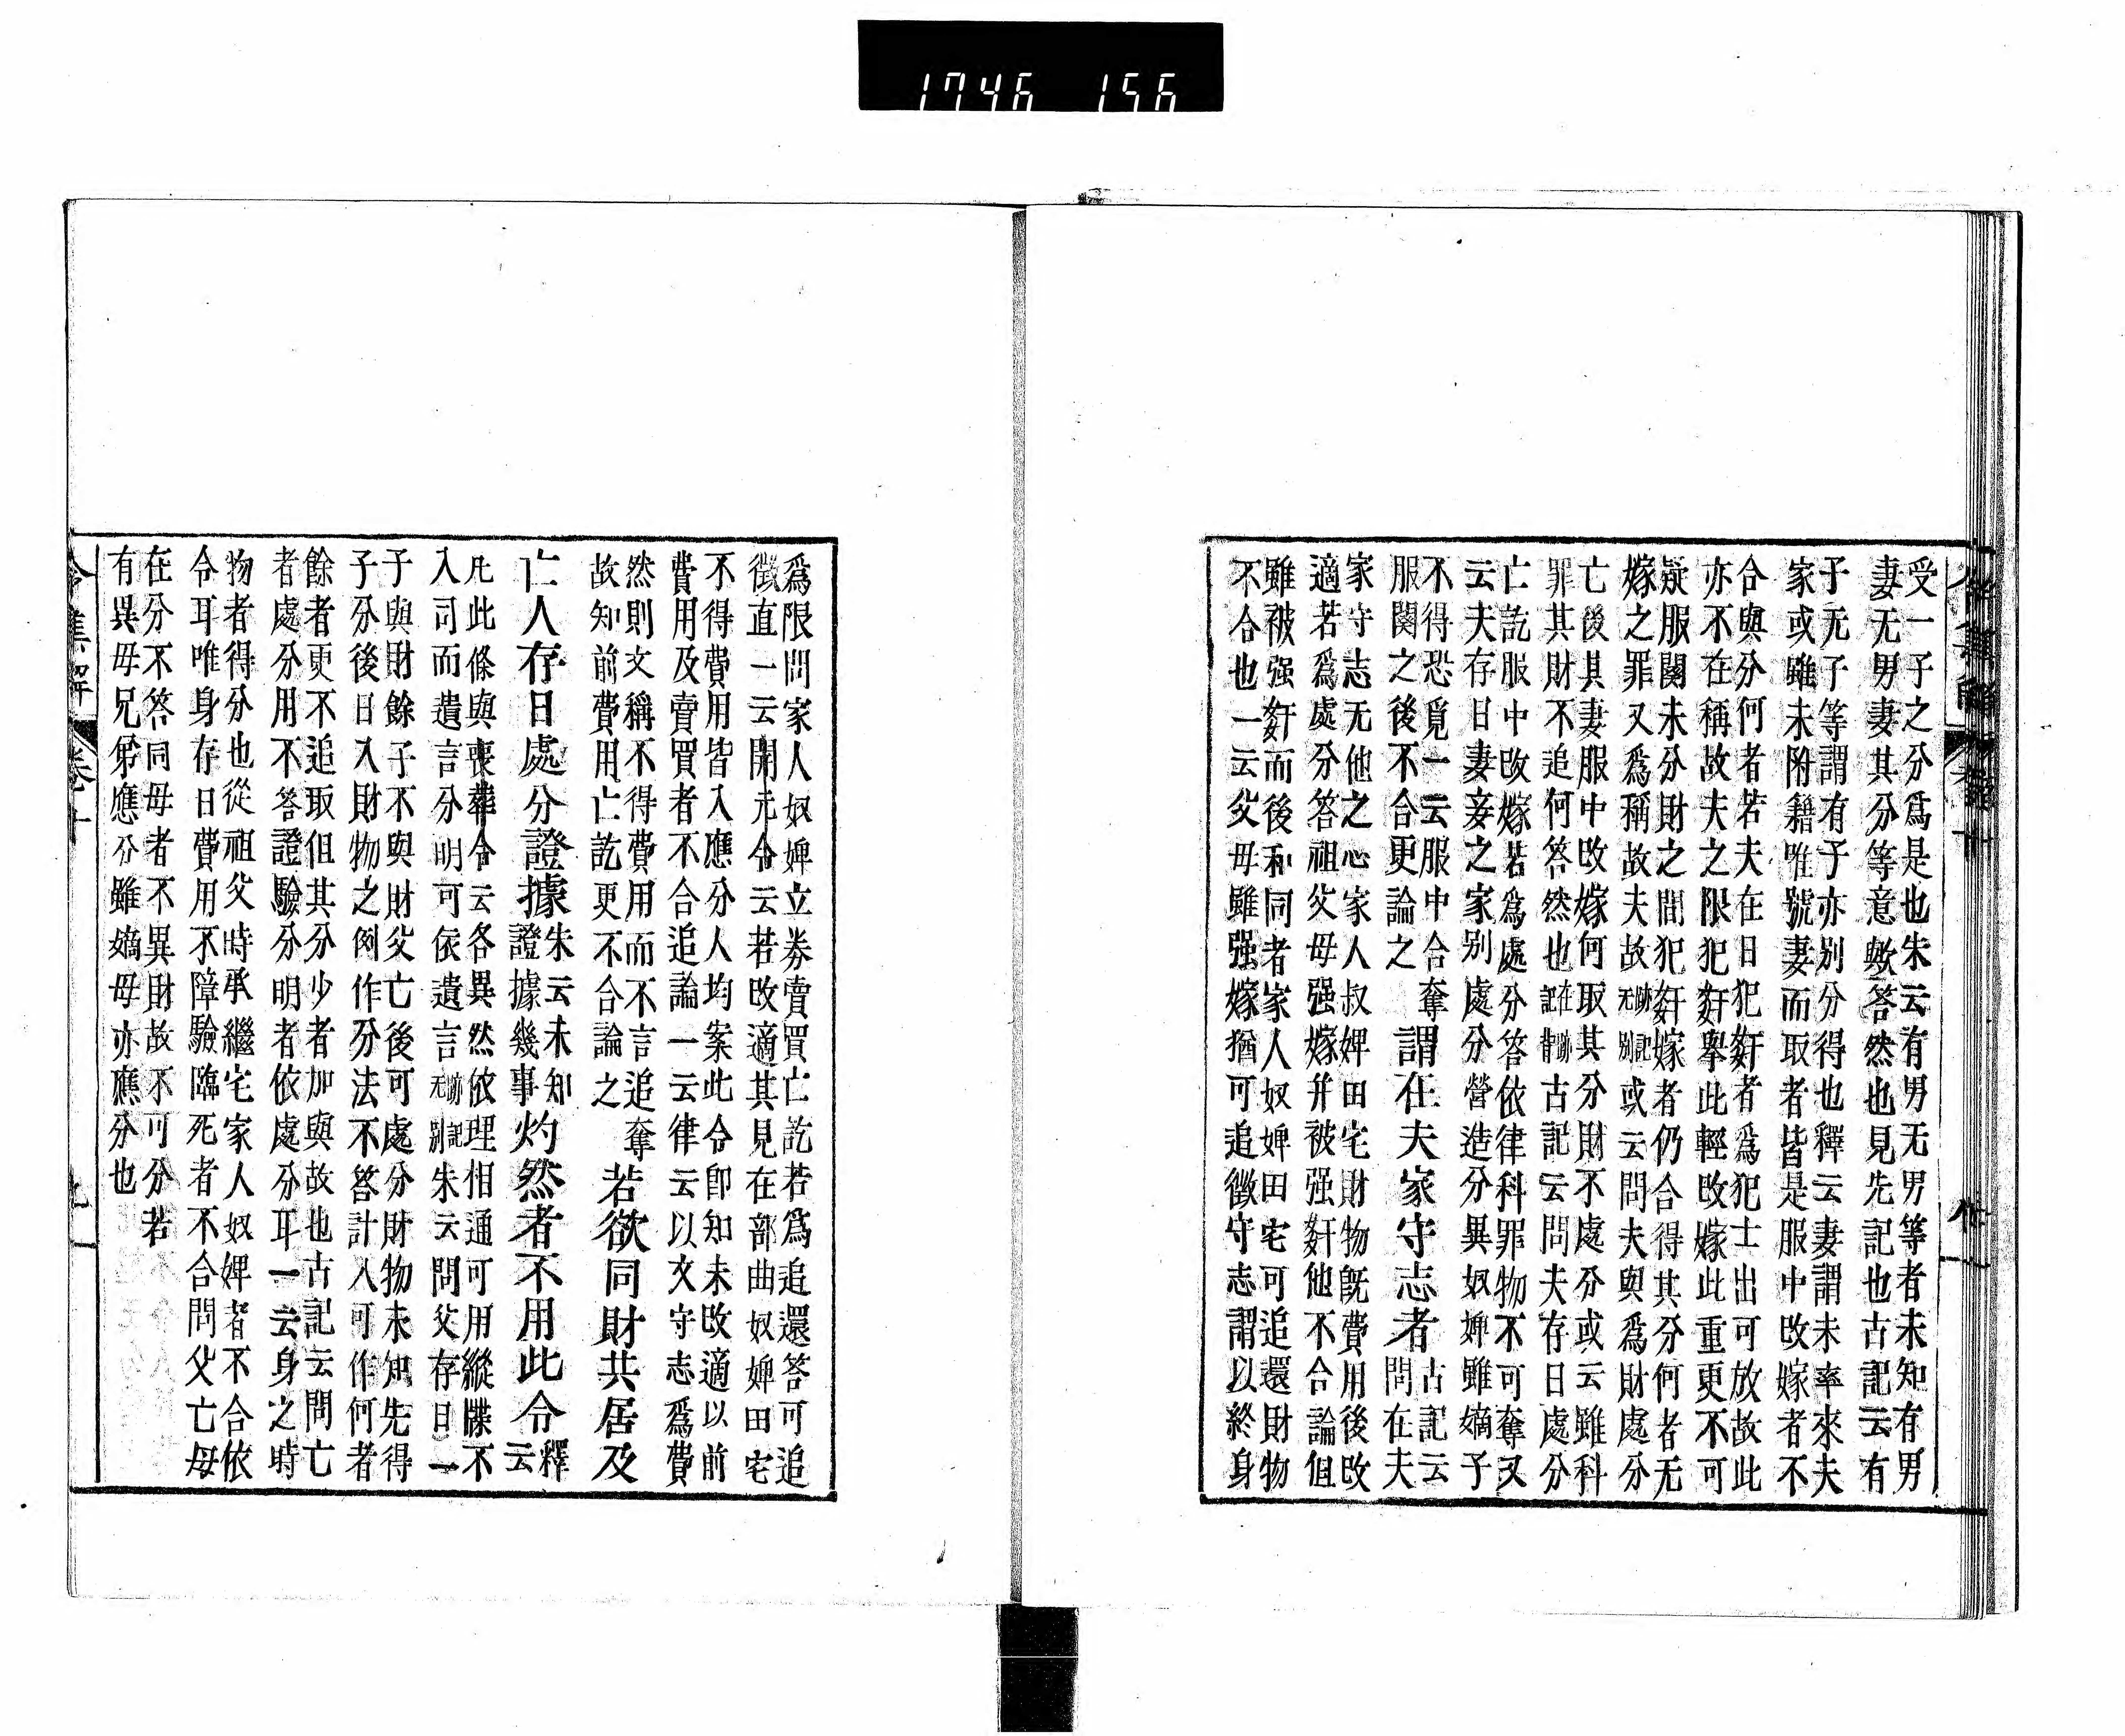 1746 156
受一子之分爲是也朱云有男无男等者未知有男
妻无男妻其分等意歟答然也見先記也古記云有
子无子等謂有子亦别分得也釋云妻謂未率來夫
家或雖未附籍唯號妻而取者皆是服中改嫁者不
合與分何者若夫在日犯姧者爲犯士出可放故此
亦不在稱故夫之限犯姧舉此輕改嫁此重更不可
疑服闋未分財之間犯姧嫁者仍合得其分何者无
嫁之罪又爲稱故夫故无跡別記或云問夫與爲財處分
亡後其妻服中改嫁何取其分財不處分或云雖科
罪其財不追何答然也在跡記背古記云問夫存日處分
亡訖服中改嫁若爲處分答依律科罪物不可奪又
云夫存日妻妾之家别處分營造分異奴婢雖嫡子
不得恐覓一云服中合奪 謂在夫家守志者 古記云
服闋之後不合更論之 問在夫
家守志无他之心家人叔婢田宅財物既費用後改
適若爲處分答祖父母强嫁并被强姧他不合論但
雖被强姧而後和同者家人奴婢田宅可追還財物
不合也一云父母雖强嫁猶可追徵守志謂以終身
爲限問家人奴婢立券賣買亡訖若爲追還答可追
徵直一云開元令云若改適其見在部曲奴婢田宅
不得費用皆入應分人均案此令卽知未改適以前
費用及賣買者不合追論一云律云以文守志爲費
然則文稱不得費用而不言追奪
故知前費用亡訖更不合論之 若欲同財共居及
亡人存日處分證據朱云未知證據幾事灼然者不用此令釋云
凡此條與喪葬令云各異然依理相通可用縱牒不
入司而遺言分明可依遺言无跡別記朱云問父存日一
子與財餘子不與財父亡後可處分財物未知先得
子分後日入財物之例作分法不答計入可作何者
餘者更不追取但其分少者加與故也古記云問亡
者處分用不答證驗分明者依處分耳一云身之時
物者得分也從祖父時承繼宅家人奴婢者不合依
令耳唯身存日費用不障驗臨死者不合問父亡母
在分不答同母者不異財故不可分若
有異母兄弟應分雖嫡母亦應分也
令集解 卷十